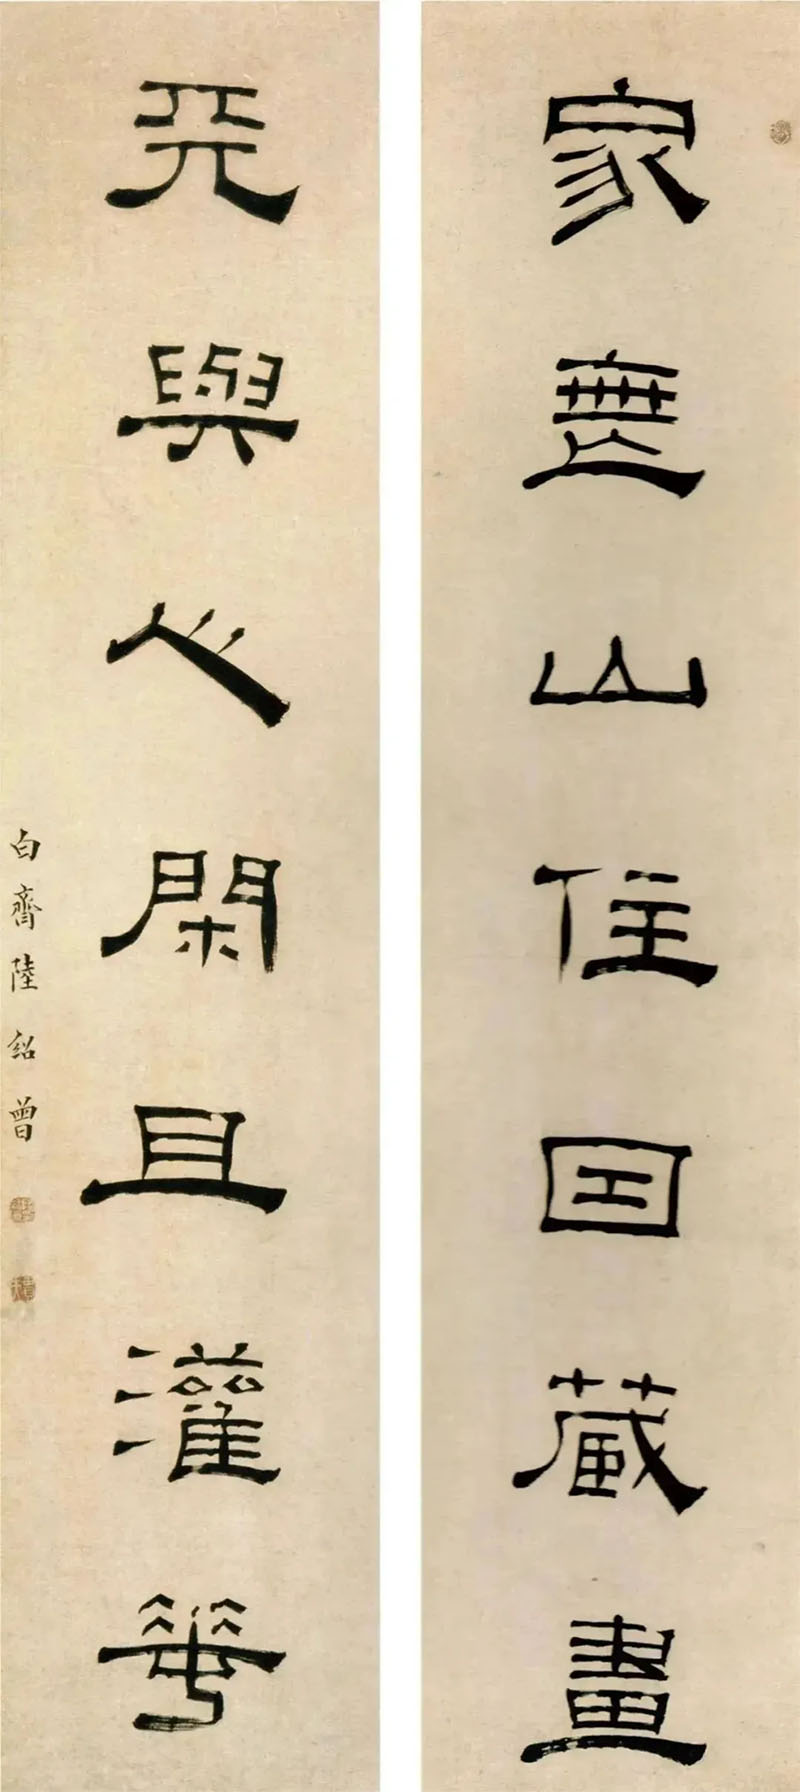 家無山住因藏畫
天與心閑且灌華
白齋陸紹曾